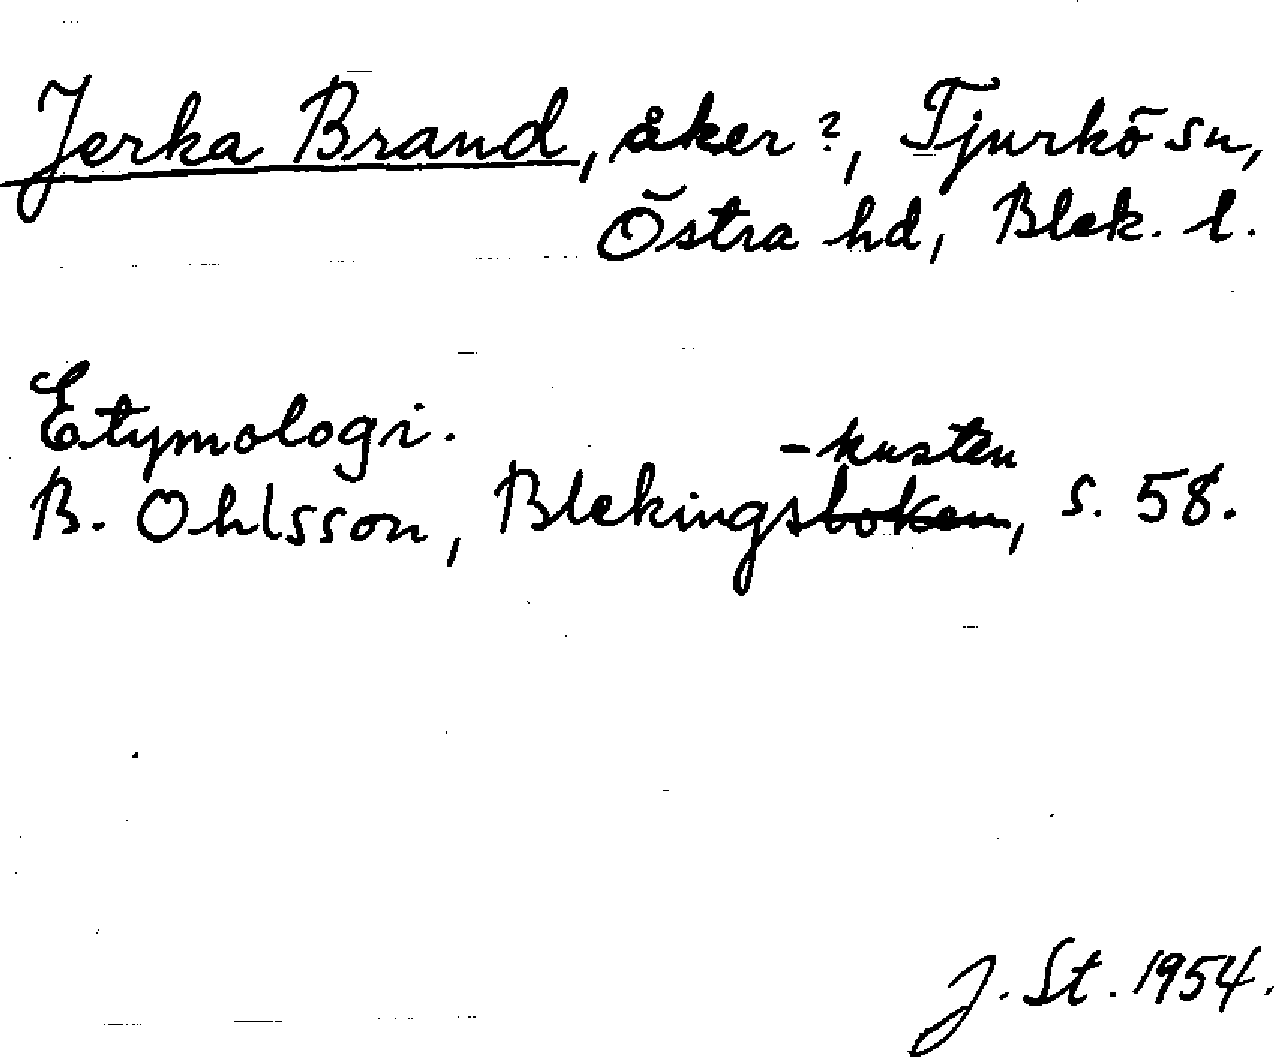 Jerka Brand, åker?, Tjurkö sn,
Östra hd, Blek. l.
Etymologi.
-kusten
B. Ohlsson, Blekingsboken, s. 58.
J. St. 1954.